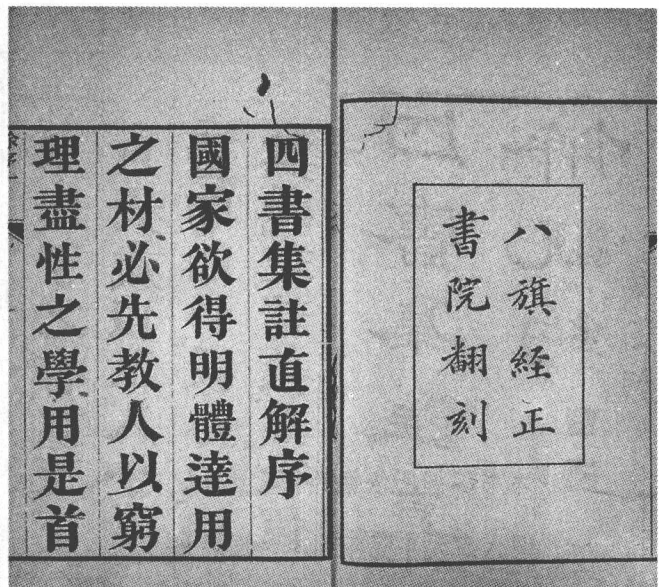 八旗経正
書院翻刻
四書集註直解序
國家欲得明體達用
之材必先教人以窮
理盡性之學用是首